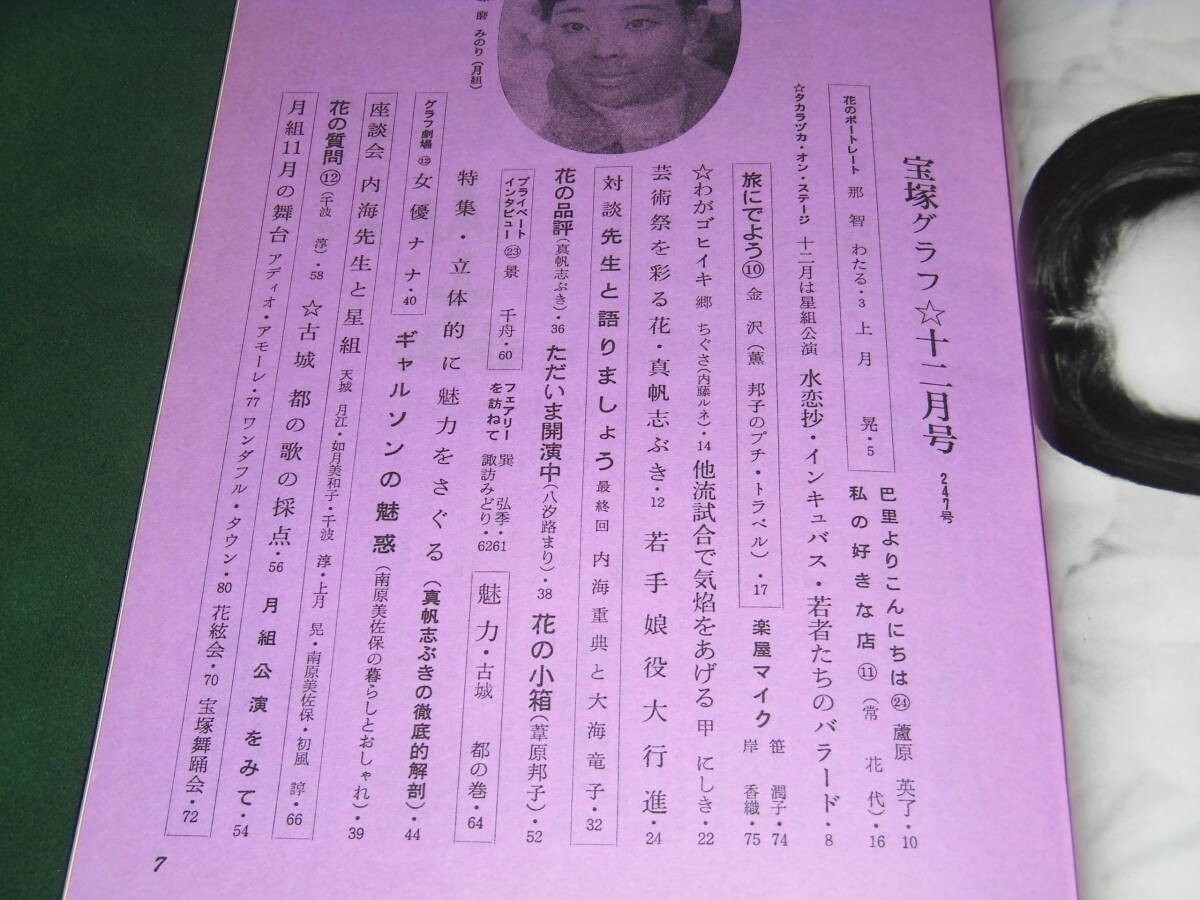 宝塚グラフ☆十二月号 247号
巴里よりこんにちは㉔ 蘆原 英了・10
花のポートレート 那智 わたる・3 上月 晃・5
私の好きな店⑪(常 花代)・16
☆タカラヅカ・オン・ステージ 十二月は星組公演 水恋抄・インキュバス・若者たちのバラード・8
旅にでよう⑩ 金沢(薫 邦子のプチ・トラベル)・17
楽屋マイク 笹 潤子・74
岸 香織・75
☆わがゴヒイキ 郷 ちぐさ(内藤ルネ)・14 他流試合で気焔をあげる 甲 にしき・22
芸術祭を彩る花・真帆志ぶき・12 若手娘役大行進・24
対談先生と語りましょう 最終回 内海重典と大海竜子・32
花の品評(真帆志ぶき)・36 ただいま開演中(八汐路まり)・38 花の小箱(葦原邦子)・52
プライベートインタビュー㉓ 景 千舟・60
フェアリーを訪ねて 巽 弘季・61
諏訪みどり・62
魅力・古城 都の巻・64
特集・立体的に魅力をさぐる(真帆志ぶきの徹底的解剖)・44
グラフ劇場⑫ 女優ナナ・40
ギャルソンの魅惑(南原美佐保の暮らしとおしゃれ)・39
座談会 内海先生と星組 天城 月江・如月美和子・千波 淳・上月 晃・南原美佐保・初風 諄・66
花の質問⑫(千波 淳)・58 ☆古城 都の歌の採点・56 月組公演をみて・54
月組11月の舞台 アディオ・アモーレ・77 ワンダフル・タウン・80 花絃会・70 宝塚舞踊会・72
磨 みのり(月組)
7